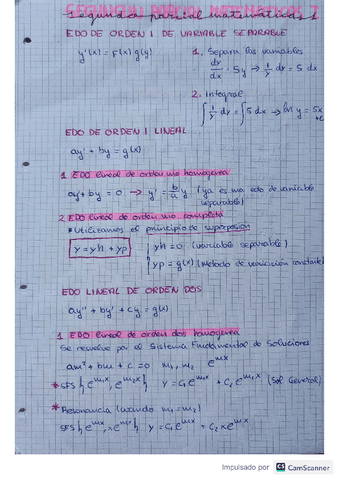 Segundo parcial matemáticas I
EDO DE ORDEN 1 DE VARIABLE SEPARABLE
y'(x) = F(x) g(y)
1. Separa las variables
dy/dx = 5y → 1/y dy = 5 dx
2. Integral
∫ 1/y dy = ∫ 5 dx → ln y = 5x + c
EDO DE ORDEN 1 LINEAL
ay' + by = g(x)
1 EDO lineal de orden uno homogenea
ay' + by = 0 → y' = b/a y (ya es una edo de variable
separable)
2 EDO lineal de orden uno completa
* Utilizamos el principio de superposición
y = yh + yp
yh = 0 (variable separable)
yp = g(x) (Método de variación constante)
EDO LINEAL DE ORDEN DOS
ay'' + by' + cy = g(x)
1 EDO lineal de orden dos homogenea
Se resuelve por el Sistema Fundamental de Soluciones
am² + bm + c = 0 m₁, m₂ e^mx
* SFS {e^m₁x, e^m₂x} y = C₁e^m₁x + C₂e^m₂x (Sol General)
* Resonancia (cuando m₁ = m₂)
SFS {e^mx, xe^mx} y = C₁e^mx + C₂xe^mx
Impulsado por CS CamScanner